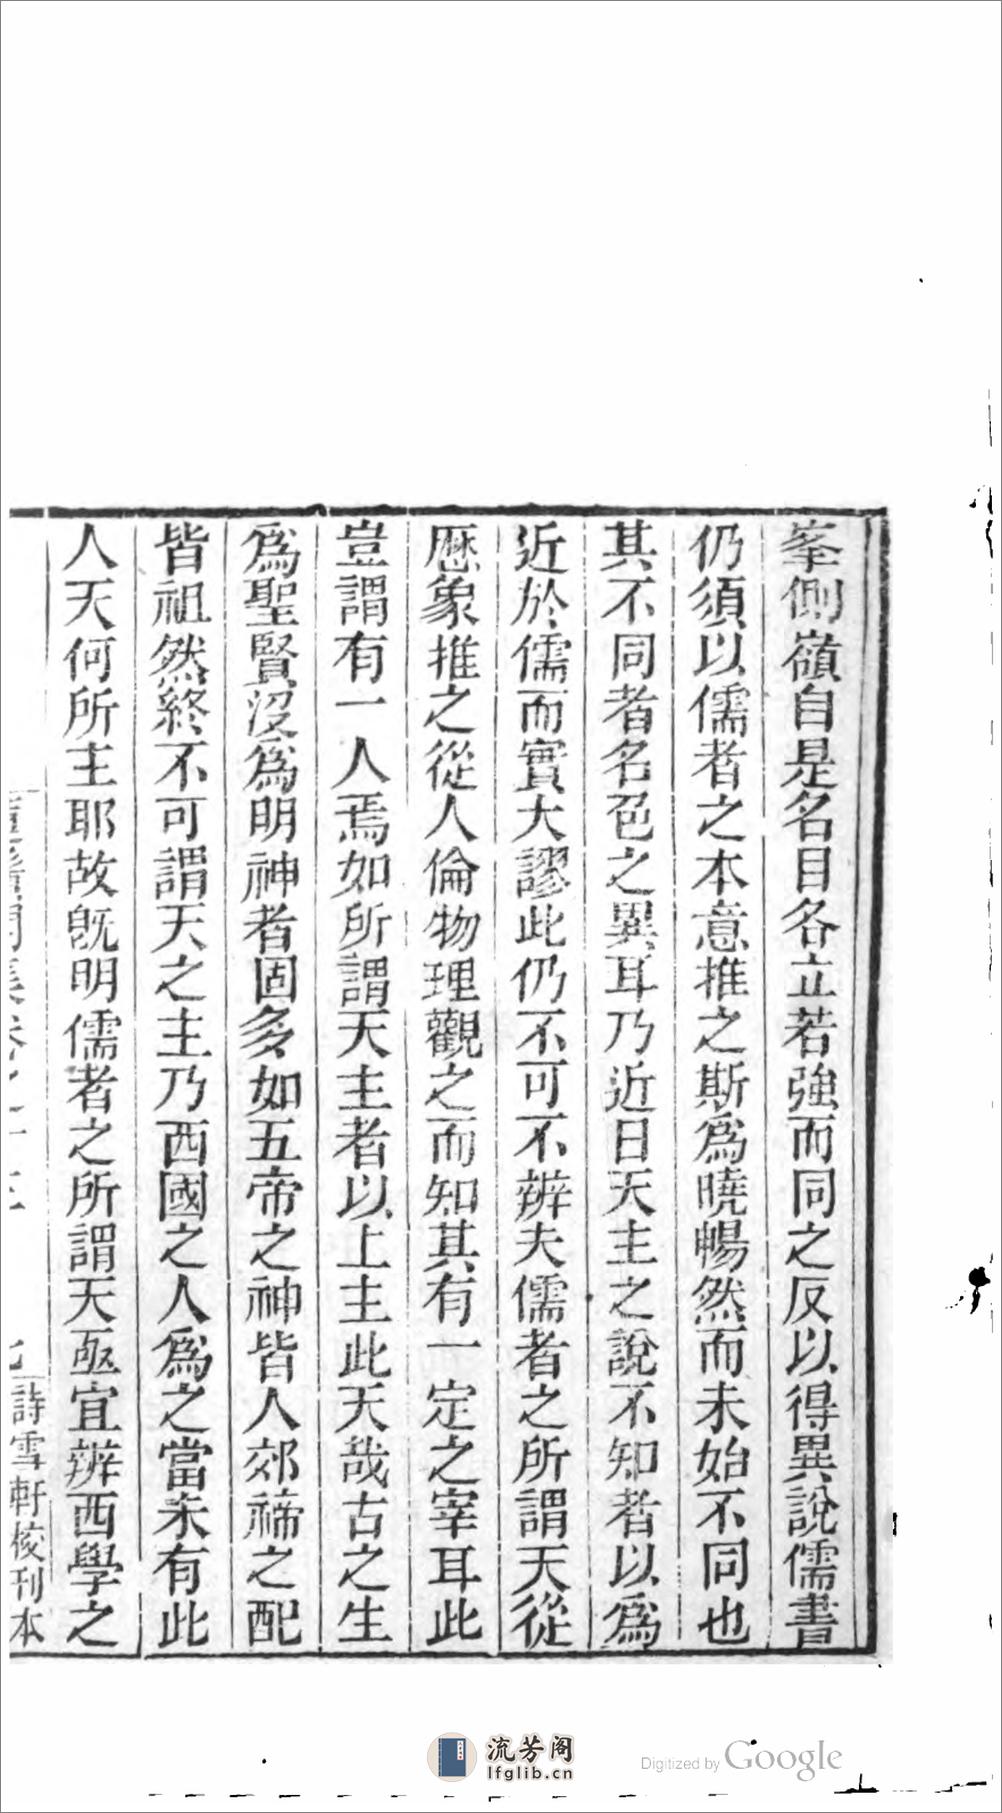 峯側嶺自是名目各立若強而同之反以得異說儒書
仍須以儒者之本意推之斯爲曉暢然而未始不同也
其不同者名色之異耳乃近日天主之說不知者以爲
近於儒而實大謬此仍不可不辨夫儒者之所謂天從
歷象推之從人倫物理觀之而知其有一定之宰耳此
豈謂有一人焉如所謂天主者以上主此天哉古之生
爲聖賢沒爲明神者固多如五帝之神皆人郊禘之配
皆祖然終不可謂天之主乃西國之人爲之當未有此
人天何所主耶故旣明儒者之所謂天亟宜辨西學之
詩雪軒校刊本
流芳阁
lfglib.cn
Digitized by Google